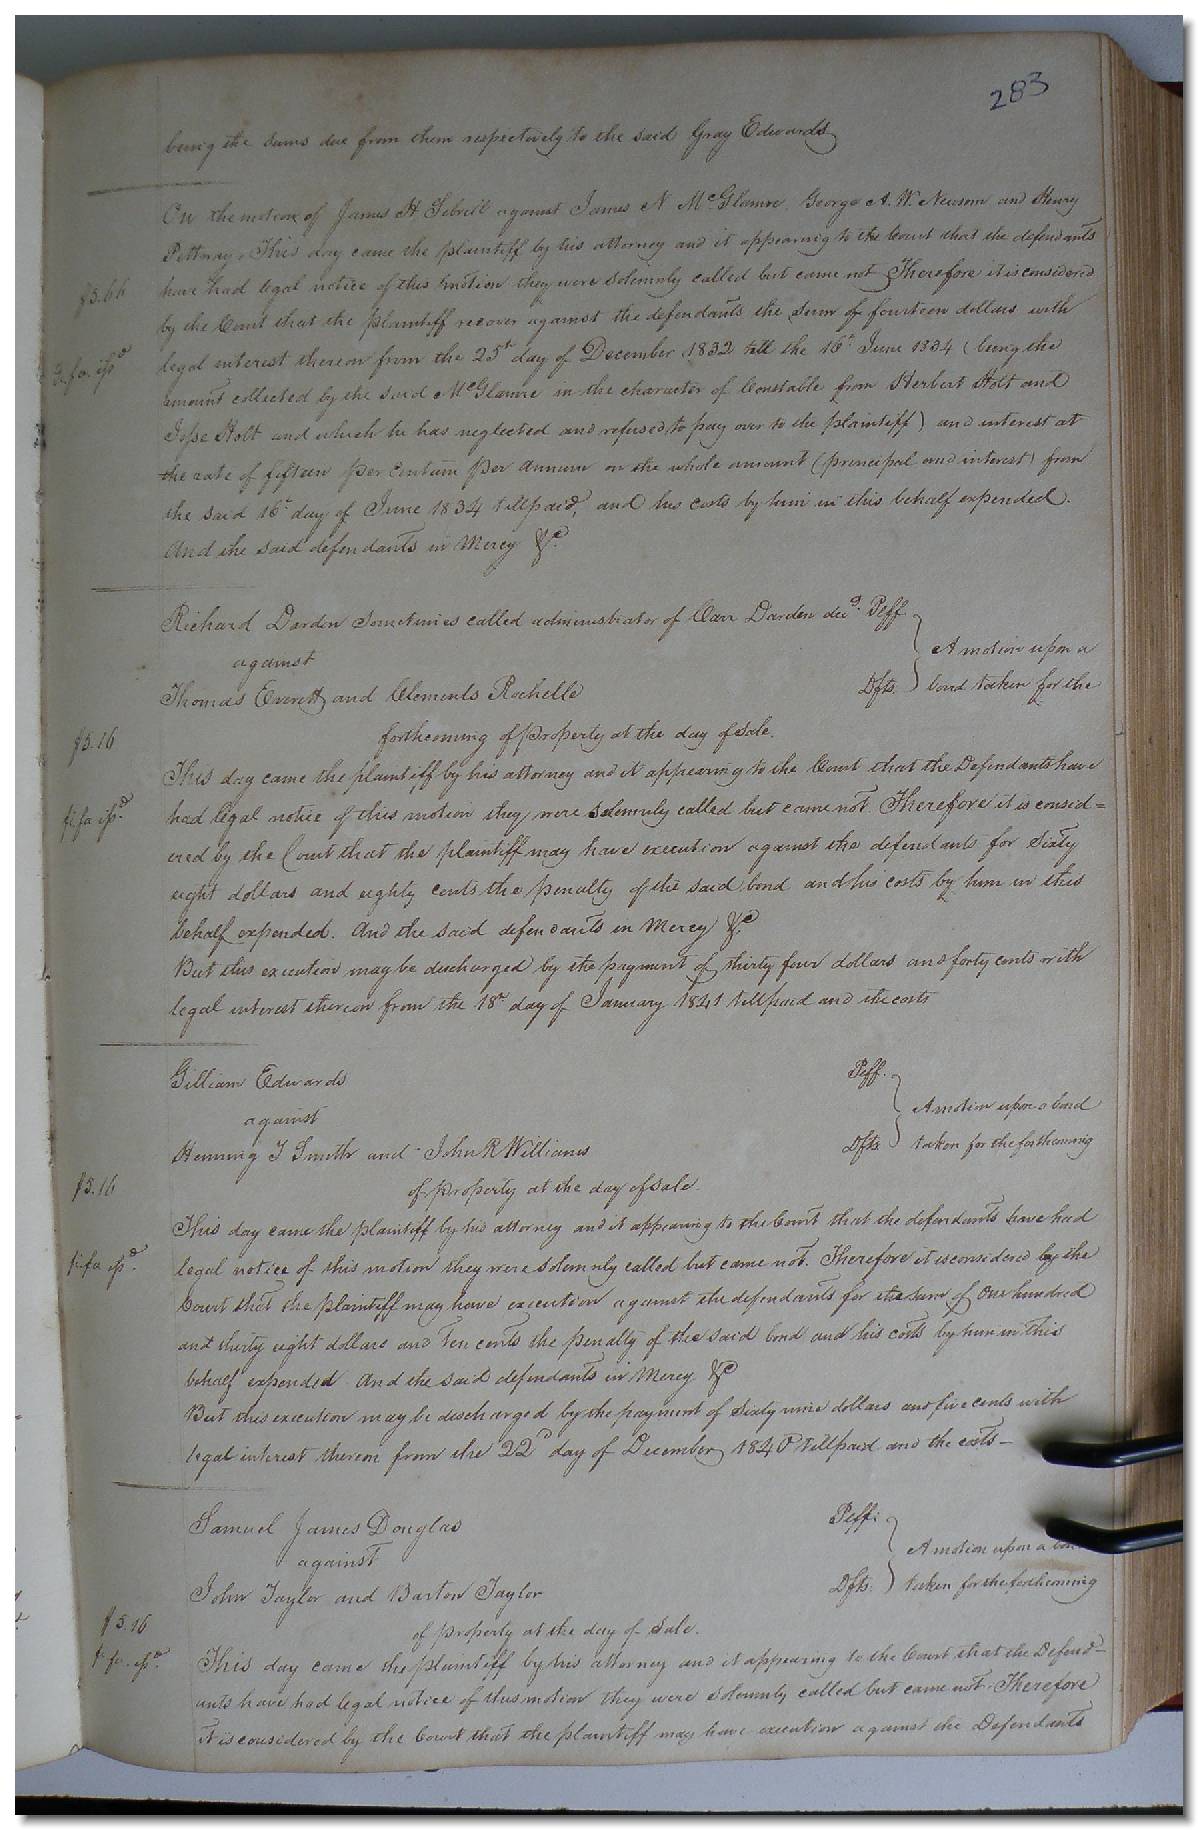 283
being the sums due from them respectively to the said Gray Edwards
On the motion of James H Sebrell against James N McGlamre George A. W. Newsom and Henry
Pittway. This day came the plaintiff by his attorney and it appearing to the Court that the defendants
$5.66
have had legal notice of this motion they were solemnly called but came not Therefore it is considered
by the Court that the plaintiff recover against the defendants the sum of fourteen dollars with
fi. fa. issd
legal interest thereon from the 25th day of December 1832 till the 16th June 1834 (being the
amount collected by the said McGlamre in the character of Constable from Herbert Holt and
Jesse Holt and which he has neglected and refused to pay over to the plaintiff) and interest at
the rate of fifteen per centum per annum on the whole amount (principal and interest) from
the said 16th day of June 1834 till paid, and his costs by him in this behalf expended.
And the said defendants in Mercy &c.
Richard Darden sometimes called administrator of Carr Darden decd. Plff
against
A motion upon a
Thomas Everett and Clements Rochelle
Dfts.
bond taken for the
$5.16
forthcoming of property at the day of sale.
This day came the plaintiff by his attorney and it appearing to the Court that the Defendants have
fi fa issd.
had legal notice of this motion they were solemnly called but came not. Therefore it is consid=
ered by the Court that the plaintiff may have execution against the defendants for Sixty
eight dollars and eighty cents the penalty of the said bond and his costs by him in this
behalf expended. And the said defendants in Mercy &c
But this execution may be discharged by the payment of thirty four dollars and forty cents with
legal interest thereon from the 18th day of January 1841 till paid and the costs
Gilliam Edwards
Plff.
against
A motion upon a bond
Henning T Smith and John R Williams
Dfts.
taken for the forthcoming
$5.16
of property at the day of sale.
This day came the plaintiff by his attorney and it appearing to the Court that the defendants have had
fi fa issd.
legal notice of this motion they were solemnly called but came not. Therefore it is considered by the
Court that the plaintiff may have execution against the defendants for the sum of One hundred
and thirty eight dollars and ten cents the penalty of the said bond and his costs by him in this
behalf expended And the said defendants in Mercy &c
But this execution may be discharged by the payment of Sixty nine dollars and five cents with
legal interest thereon from the 22d day of December 1840 till paid and the costs—
Samuel James Douglas
Plff:
against
A motion upon a
John Taylor and Barton Taylor
Dfts.
taken for the forthcoming
$5.16
of property at the day of Sale.
fi fa. issd.
This day came the plaintiff by his attorney and it appearing to the Court that the Defend-
ants have had legal notice of this motion they were solemnly called but came not. Therefore
it is considered by the Court that the plaintiff may have execution against the Defendants